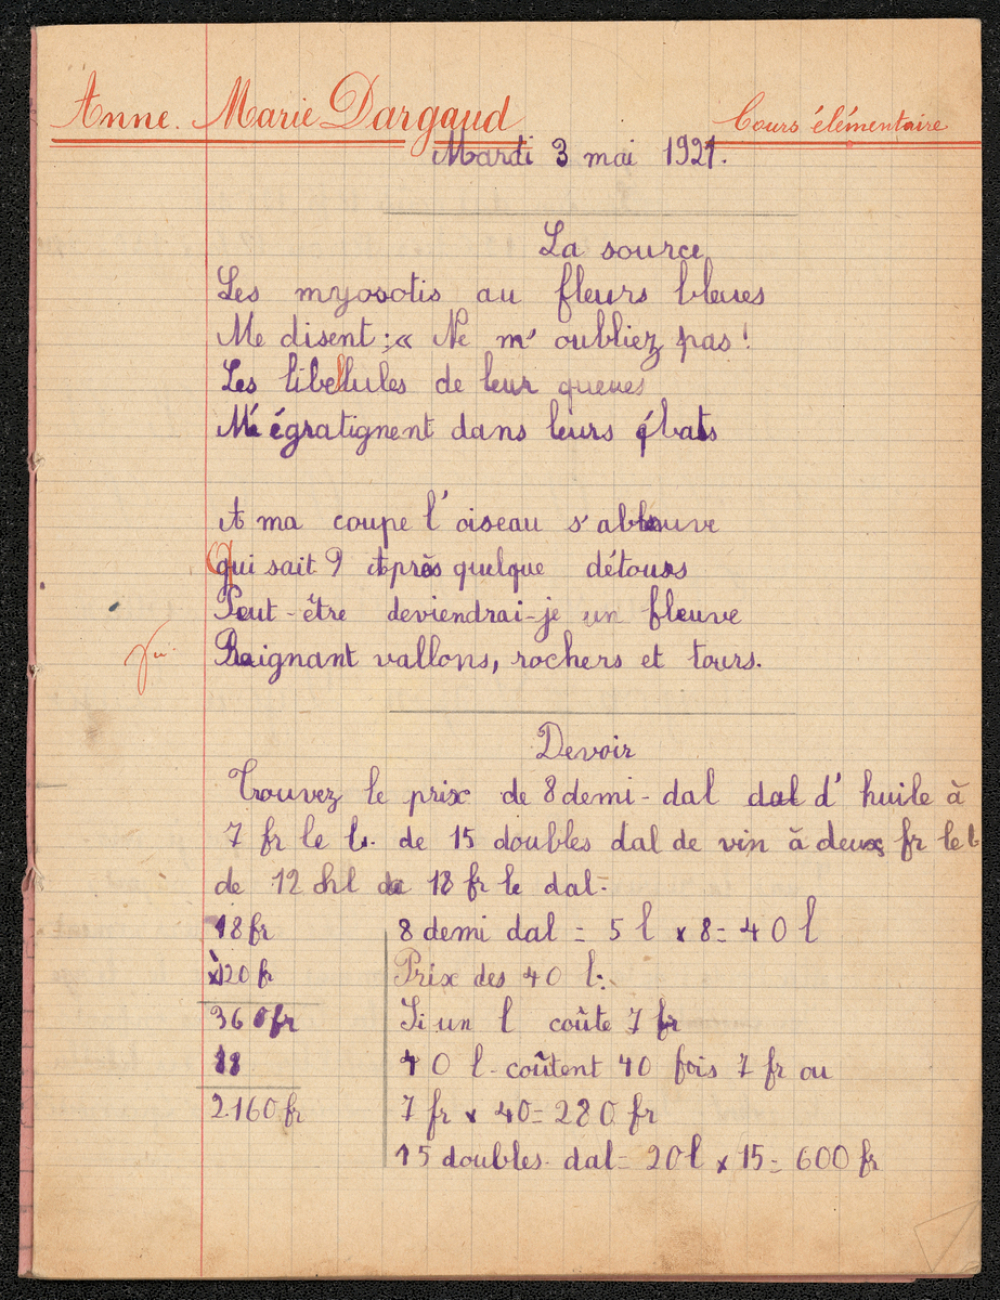 Anne. Marie Dargaud
Cours élémentaire
Mardi 3 mai 1921.
La source
Les myosotis au fleurs bleues
Me disent : « Ne m' oubliez pas !
Les libellules de leur queues
M' égratignent dans leurs ébats
A ma coupe l' oiseau s' abreuve
Qui sait ? Après quelque détours
Peut-être deviendrai-je un fleuve
Baignant vallons, rochers et tours.
Devoir
Trouvez le prix de 8 demi-dal dal d' huile à
7 fr le l. de 15 doubles dal de vin à deux fr le l
de 12 hl de 18 fr le dal.
18 fr
x120 fr
360 fr
18
2160 fr
8 demi dal = 5 l x 8 = 40 l
Prix des 40 l.
Si un l coûte 7 fr
40 l. coûtent 40 fois 7 fr ou
7 fr x 40 = 280 fr
15 doubles. dal = 20 l x 15 = 600 fr